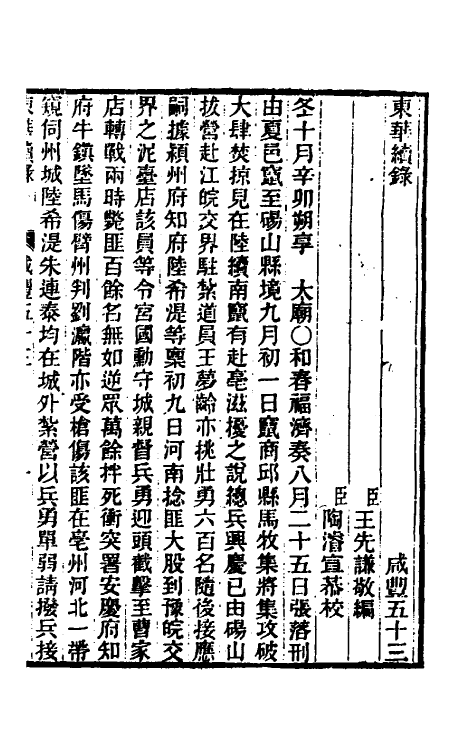 東華續錄　咸豐五十三
臣王先謙敬編
臣陶濬宣恭校
冬十月辛卯朔享　太廟○和春福濟奏八月二十五日張落刑
由夏邑竄至碭山縣境九月初一日竄商邱縣馬牧集將集攻破
大肆焚掠見在陸續南竄有赴亳滋擾之說總兵興慶已由碭山
拔營赴江皖交界駐紮道員王夢齡亦挑壯勇六百名隨後接應
嗣據潁州府知府陸希湜等稟初九日河南捻匪大股到豫皖交
界之泥臺店該員等令宮國勳守城親督兵勇迎頭截擊至曹家
店轉戰兩時斃匪百餘名無如逆眾萬餘拌死衝突署安慶府知
府牛鎮墜馬傷臂州判劉瀛階亦受槍傷該匪在亳州河北一帶
窺伺州城陸希湜朱連泰均在城外紮營以兵勇單弱請撥兵接
東華續錄　咸豐五十三